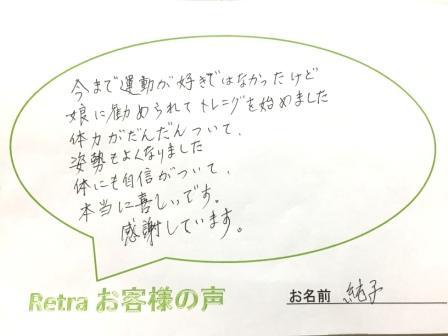 今まで運動が好きではなかったけど
娘に勧められてトレニグを始めました
体力がだんだんついて、
姿勢もよくなりました
体にも自信がついて、
本当に喜しいです。
感謝しています。
Retra お客様の声
お名前 純子